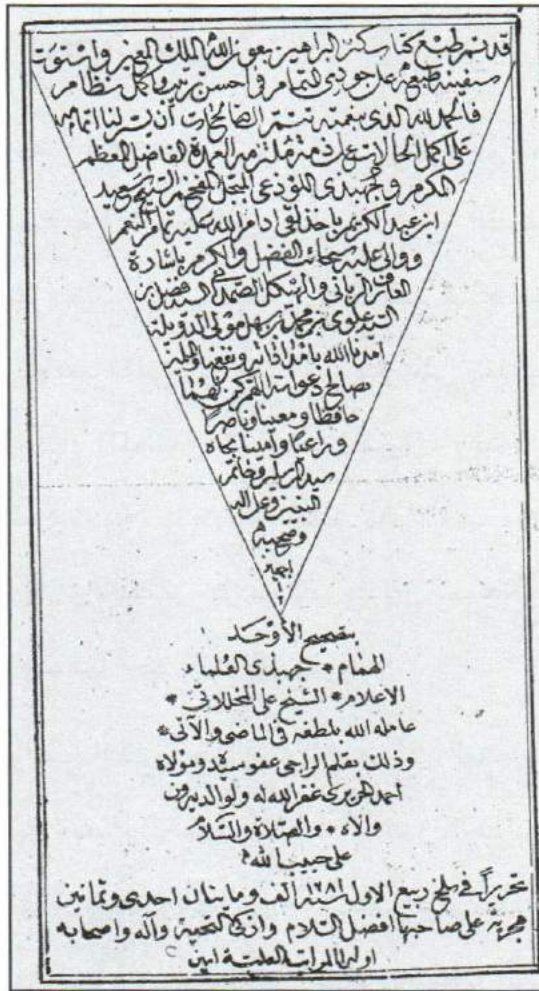 قد تم طبع كتاب كنز البراهين بعون الله الملك المعين واستوت
سفينة طبعه على جودي التمام في احسن ترتيب واكمل نظام
فالحمد لله الذي بنعمته تتم الصالحات أن يسر لنا اتمامه
على اكمل الحالات على ذمة ملتزميه العمدة الفاضل المعظم
المكرم وجهبذي اللوذعي المبجل المفخم الشيخ سعيد
ابن عبد الكريم باحذلقى ادام الله عليه تمام النعم
ووالى عليه سحائب الفضل والكرم باشارة
العارف الرباني والهيكل الصمداني السيد فضل بن
السيد علوي بن محمد بن سهل مولى الدويلة
امدنا الله بامداداته ونفعنا والمسلمين
بصالح دعواته اللهم كن لهما
حافظا ومعينا وناصرا
وراعيا وأمينا بجاه
سيد المرسلين وخاتم
النبيين وعلى اله
وصحبه
اجمعين
بتصحيح الأوحد
الهمام * جهبذي العلماء
الاعلام * الشيخ على المخللاتى *
عامله الله بلطفه في الماضى والآتى *
وذلك بقلم الراجى عفو سيده ومولاه
احمد غفر الله له ولوالديه ومن
والاه * والصلاة والسلام
على حبيب الله
تحريرا في سلخ ربيع الاول سنة ١٢٨١ الف ومايتان احدى وثمانين
هجرية على صاحبها افضل السلام وازكى التحية وآله واصحابه
اولى المراتب العلية امين